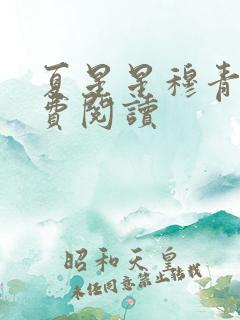 夏星星穆青
費閱讀
昭和天皇
未任同意禁止转载